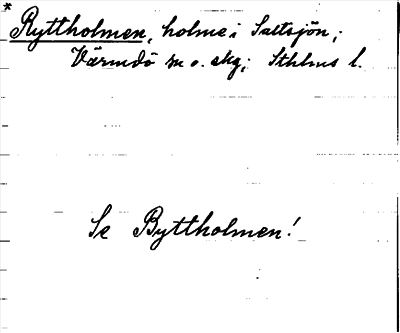 * Ryttholmen, holme i Saltsjön,;
Värmdö sn o. skg; Sthlms l.
Se Byttholmen!